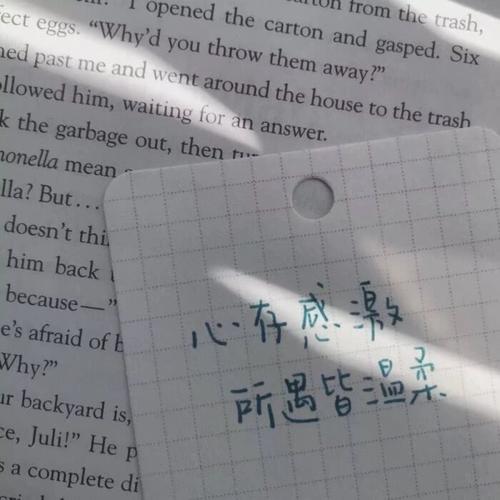 from the trash,
I opened the carton and gasped. Six
fect eggs. “Why’d you throw them away?”
past me and went around the house to the trash
ollowed him, waiting for an answer.
k the garbage out, then
monella mean
lla? But...
doesn’t thi
him back
because—”
e’s afraid of b
Why?”
ur backyard is,
ce, Juli!” He p
s a complete di
心存感激
所遇皆温柔